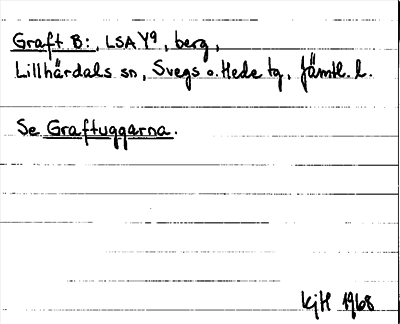 Graft B:, LSA Y9, berg,
Lillhärdals sn, Svegs o. Hede tg, Jämtl. l.
Se Graftuggarna.
KjH 1968